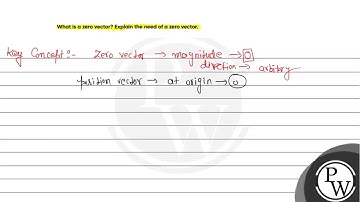 What is a zero vector? Explain the need of a zero vector.
Key Concept:- Zero vector → magnitude → 0
direction → arbitary
position vector → at origin → 0
PW